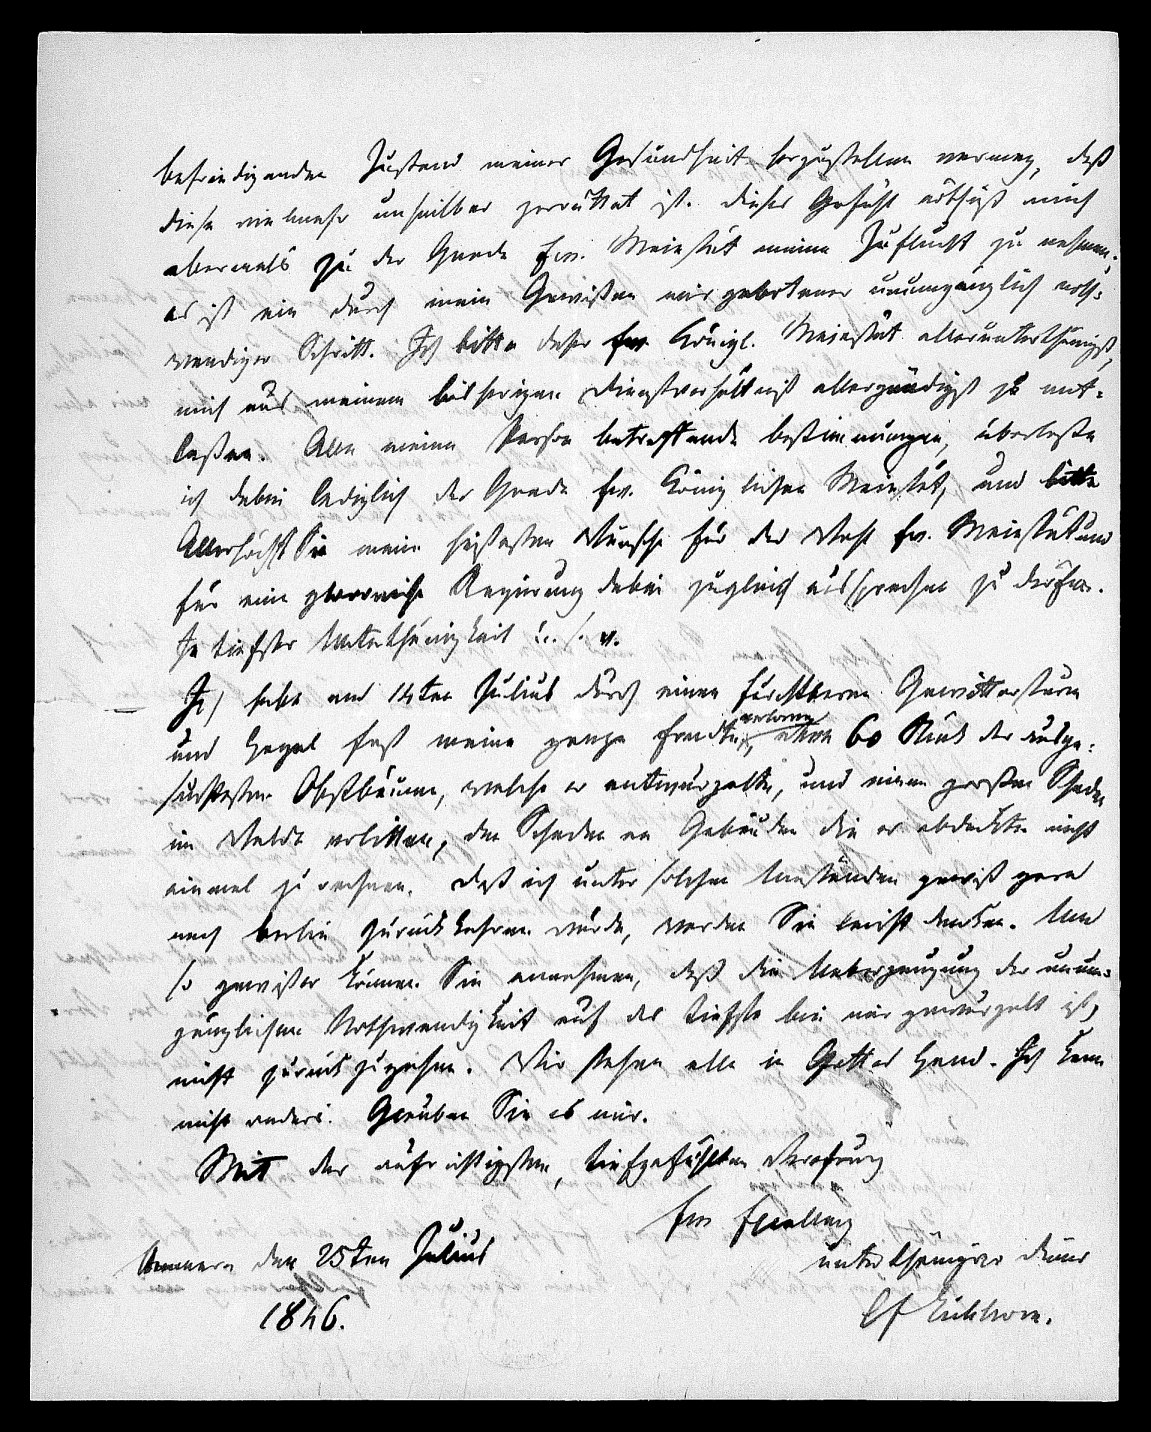 befriedigenden Zustand meiner Gesundheit herzustellen vermag, daß
diese vielmehr unheilbar zerrüttet ist. Dieses Gefühl nöthigt mich
abermals zu der Gnade Ew. Majestät meine Zuflucht zu nehmen;
es ist ein durch mein Gewißen mir gebotener unumgänglich noth-
wendiger Schritt. Ich bitte daher Ew. Königl. Majestät allerunterthänigst,
mich aus meinem bisherigen Dienstverhältniß allergnädigst zu ent-
laßen. Alle meine Person betreffende Bestimmungen, überlaße
ich dabei lediglich der Gnade Ew. Königlichen Majestät, und bitte
Allerhöchst Sie meine heißesten Wünsche für das Wohl Ew. Majestät und
für eine glorreiche Regierung dabei zugleich aussprechen zu dürfen.
In tiefster Unterthänigkeit
Ich habe am 14ten Julius durch einen furchtbaren Gewittersturm
und Hagel fast meine ganze Erndte verloren, etwa 60 Stück der ausge-
suchtesten Obstbäume, welche er entwurzelte, und einen großen Schaden
im Walde erlitten, den Schaden an Gebäuden die er abdeckte nicht
einmal zu rechnen. Daß ich unter solchen Umständen gewiß gern
nach Berlin zurückkehren würde, werden Sie leicht denken. Um
so gewißer können Sie annehmen, daß die Ueberzeugung der unum-
gänglichen Nothwendigkeit auf das tiefste bei mir gewurzelt ist,
nicht zurückzugehen. Wir stehen alle in Gottes Hand. Ich kann
nicht anders. Glauben Sie es mir.
Mit der aufrichtigsten, tiefgefühlten Verehrung
Ew Excellenz
Ammern den 25ten Julius
unterthäniger Diener
1846.
CF Eichhorn.